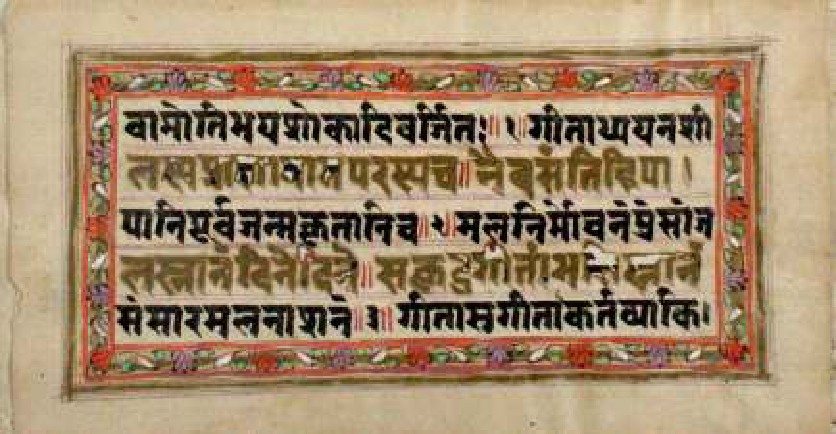 वाप्नोतिभयशोकादिवर्जितः॥१॥गीताध्ययनशी
लस्यप्राणायामपरस्यच॥नैवसंतिहिपा।
पानिपूर्वजन्मकृतानिच॥२॥मलनिर्मोचनंपुंसांज
लस्नानंदिनेदिने॥सकृद्गीतांभसिस्नानं
संसारमलनाशनं॥३॥गीतासुगीताकर्तव्याकि।